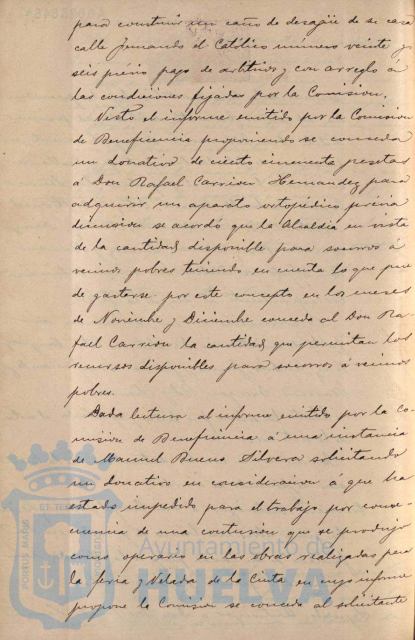 para construir un caño de desagüe de su casa
calle Fernando el Católico número veinte y
seis prévio pago de arbitrios y con arreglo á
las condiciones fijadas por la Comision.
Visto el informe emitido por la Comision
de Beneficencia proponiendo se conceda
un donativo de ciento cincuenta pesetas
á Don Rafael Carrion Hernandez para
adquirir un aparato ortopédico prévia
discusion se acordó que la Alcaldia en vista
de la cantidad disponible para socorros á
vecinos pobres teniendo en cuenta lo que pue
de gastarse por este concepto en los meses
de Noviembre y Diciembre conceda al Don Ra-
fael Carrion la cantidad que permitan los
recursos disponibles para socorros á vecinos
pobres.
Dada lectura al informe emitido por la Co-
mision de Beneficencia á una instancia
de Manuel Bueno Silvera solicitando
un donativo en consideracion a que ha
estado impedido para el trabajo por conse-
cuencia de una contusion que se produjo
como operario en las obras realizadas para
la feria y Velada de la Cinta en cuyo informe
propone la Comision se conceda al solicitante
Ayuntamiento de
HUELVA
PORTUS MARIS